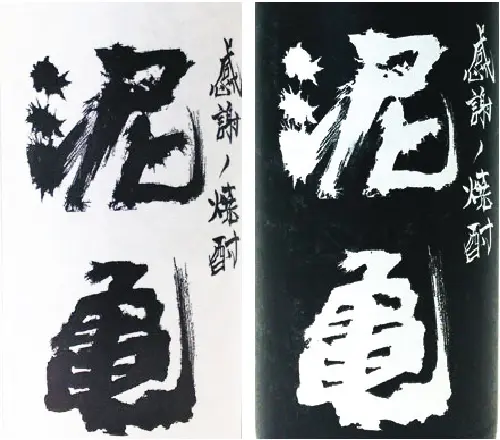 感謝ノ焼酎
泥亀
感謝ノ焼酎
泥亀